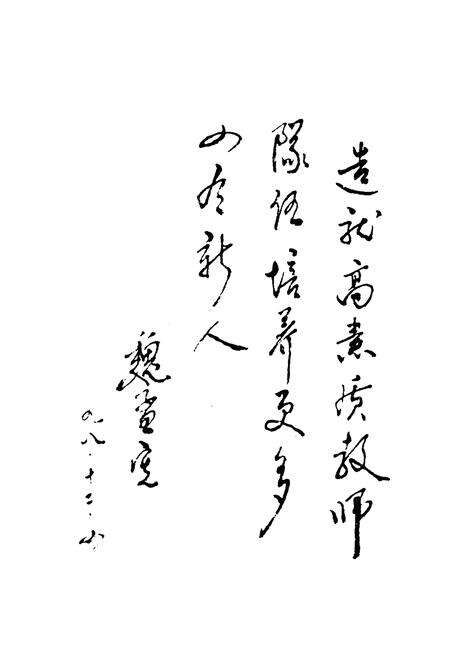 造就高素质教师
隊伍培养更多
四有新人
魏
八·十二·